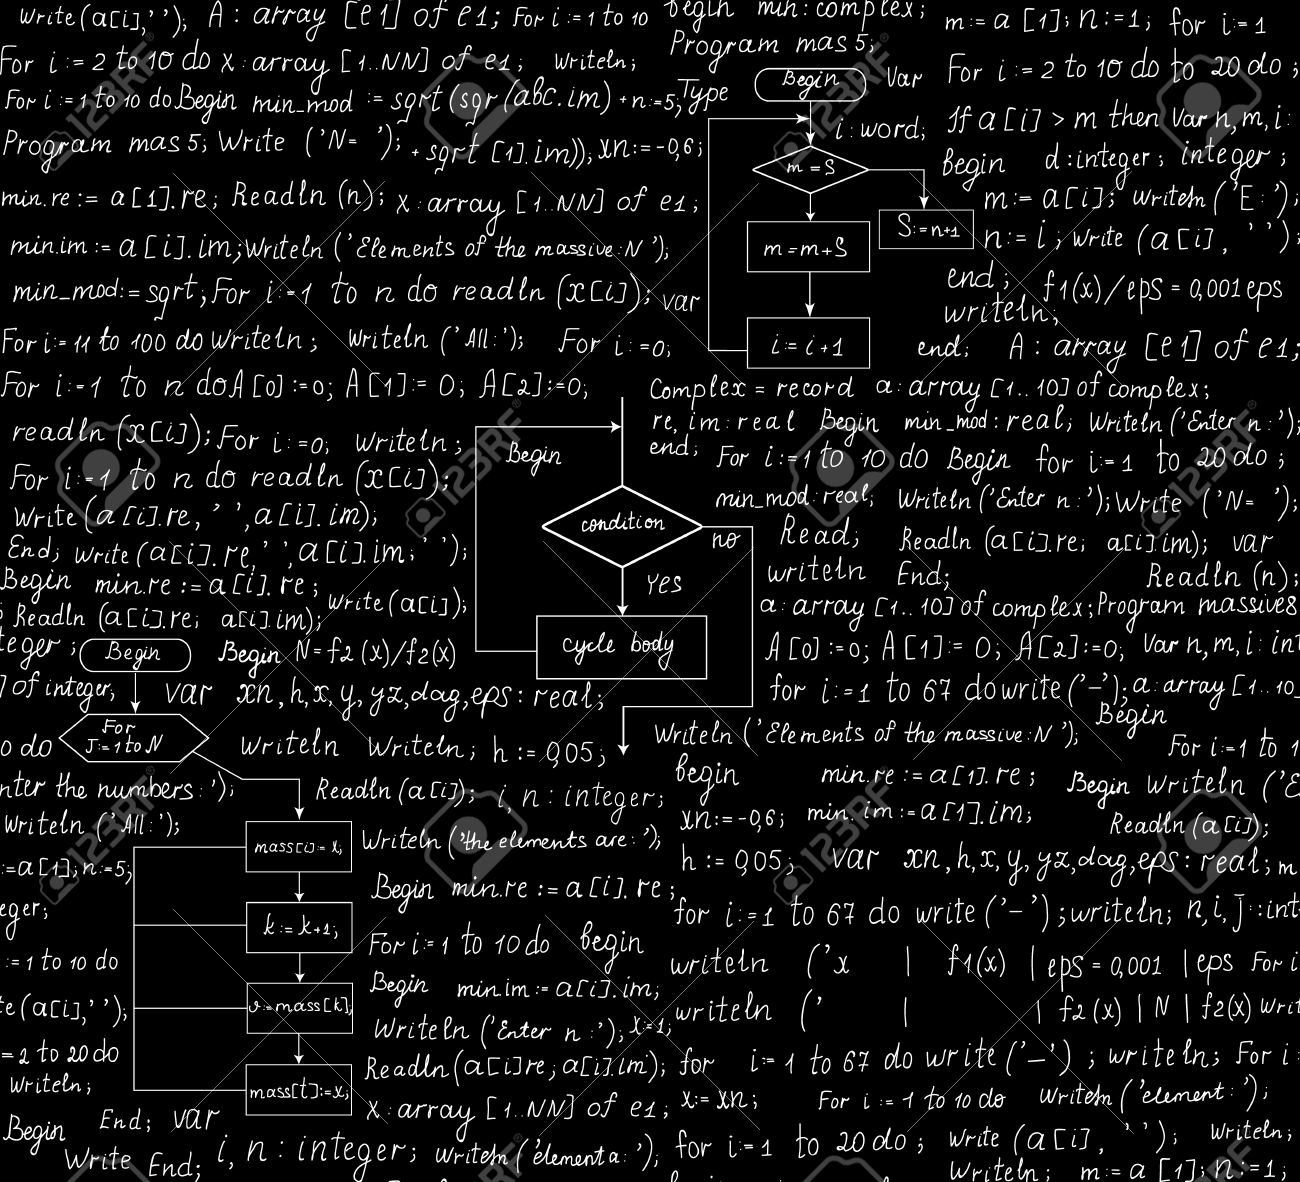 write(a[i],' '); A : array [e1] of e1; For i := 1 to 10
begin min: complex;
m:= a [1]; n:=1; for i:=1
Program mas 5;
For i := 2 to 10 do x : array [1..NN] of e1; writeln;
Begin
Var
For i := 2 to 10 do to 20 do ;
For i := 1 to 10 do Begin min_mod := sqrt (sqr (abc.im) + n:=5; Type
i : word;
If a [i] > m then Var n, m, i :
Program mas 5; Write ('N= '); + sqrt [1].im)); xn:=-0,6;
m = S
begin d : integer ; integer ;
min.re := a [1].re; Readln (n); x : array [1..NN] of e1;
m:= a[i]; writeln ('E : ');
S:= n+1
min.im := a [i].im; Writeln ('Elements of the massive : N ');
m = m+S
n:= i ; write (a [i] , ' ' );
min_mod:= sqrt; For i :-1 to n do readln (x[i]); var
end ; f1(x)/eps = 0,001 eps
writeln;
For i := 11 to 100 do Writeln ; Writeln ('All : '); For i :=0;
i := i+1
end; A : array [e1] of e1;
For i :-1 to n do A [0] :=0; A [1] := 0; A[2]:=0;
Complex = record a : array [1.. 10] of complex;
readln (x[i]); For i :=0; writeln ;
Begin
re, im : real Begin min_mod: real; Writeln ('Enter n : ');
end;
For i :=1 to 10 do Begin for i :=1 to 20 do ;
For i :-1 to n do readln (x[i]);
min_mod: real; Writeln ('Enter n : '); Write ('N= ');
Write (a [i].re, ' ',a [i]. im);
condition
no
Read; Readln (a[i].re; a[i].im); var
End; write (a[i].re,' ',a[i].im; ' ');
writeln End; Readln (n);
Begin min.re := a[i]. re ; write (a[i]);
YES
a : array [1.. 10] of complex; Program massives
Readln (a[i].re; a[i].im);
teger ; Begin Begin N= f2 (x)/f2(x)
cycle body
A [0] :=0; A [1] := 0; A[2]:=0; Var n, m, i : int
] of integer; var xn, h, x, y, yz, dag, eps : real;
for i :=1 to 67 do write ('-'); a : array [1.. 10
Begin
For
J:= 1 to N
o do writeln Writeln; h := 0,05;
Writeln ('Elements of the massive : N ');
For i :=1 to 1
nter the numbers : '); Readln (a[i]); i, n : integer;
begin min.re := a [1].re ; Begin Writeln ('E
Writeln ('All : ');
mass[i]:= x;
Writeln ('the elements are : ');
xn:= -0,6; min. im :=a [1].im; Readln (a [i]);
:=a [1]; n:=5;
Begin min.re := a [i]. re ;
h := 0,05; var xn, h, x, y, yz, dag, eps : real; m
eger;
k:= k+1;
For i := 1 to 10 do begin
for i :=1 to 67 do write ('-') ; writeln; n, i, J : int
:= 1 to 10 do
Begin min.im := a[i].im;
writeln ('x | f1(x) | eps = 0,001 | eps For i
te (a[i],' ');
v:=mass[k];
Writeln ('Enter n : '); x:=1;
writeln (' | | f2 (x) | N | f2(x) writ
= 2 to 20 do
Readln (a[i]re; a[i].im);
for i:= 1 to 67 do write ('-') ; writeln; For i
Writeln;
mass[t]:=x;
x : array [1..NN] of e1; x:= xn; For i := 1 to 10 do Writeln ('element : ');
Begin End; var
Write End; i, n : integer; writeln ('element a : ');
for i :=1 to 20 do ; write (a [i] , ' '); writeln;
Writeln; m:= a [1]; n:=1;
123RF